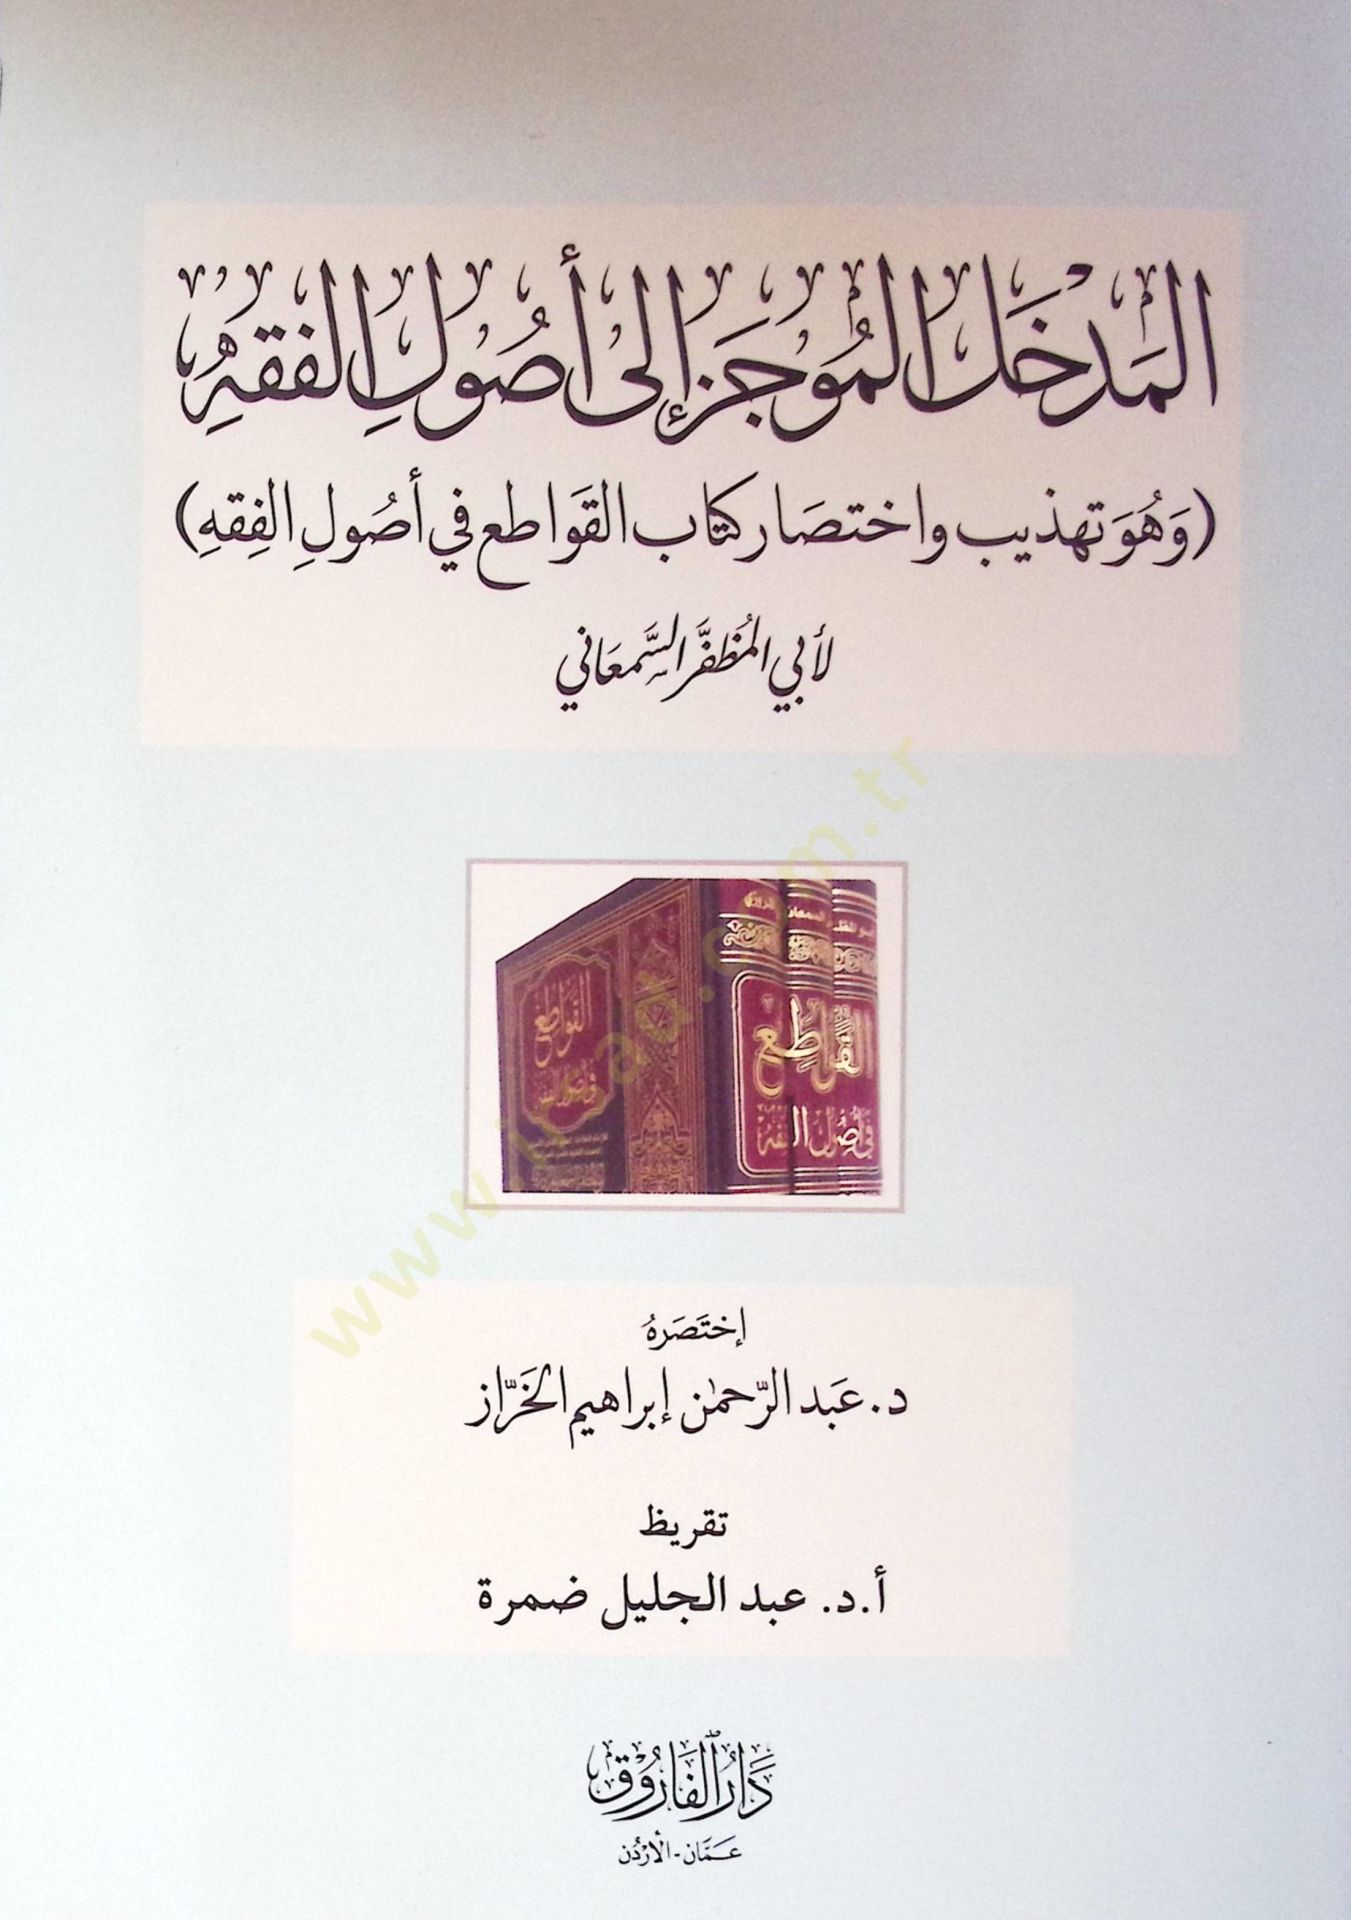 المَدْخَل المُوجَز إلى أصُولِ الفقهِ
(وَهُوَ تهذيب واختصَار كتاب القَواطع في أصُولِ الفِقهِ)
لأبي المُظفَّر السَّمعَاني
القواطع
في أصول الفقه
القَوَاطِع
في أصول الفقه
إختَصَرهُ
د. عَبد الرّحمٰن إبراهيم الخَرَّاز
تقريظ
أ.د. عبد الجليل ضمرة
دَارُ الفَارُوْق
عَمَّان - الأردُن